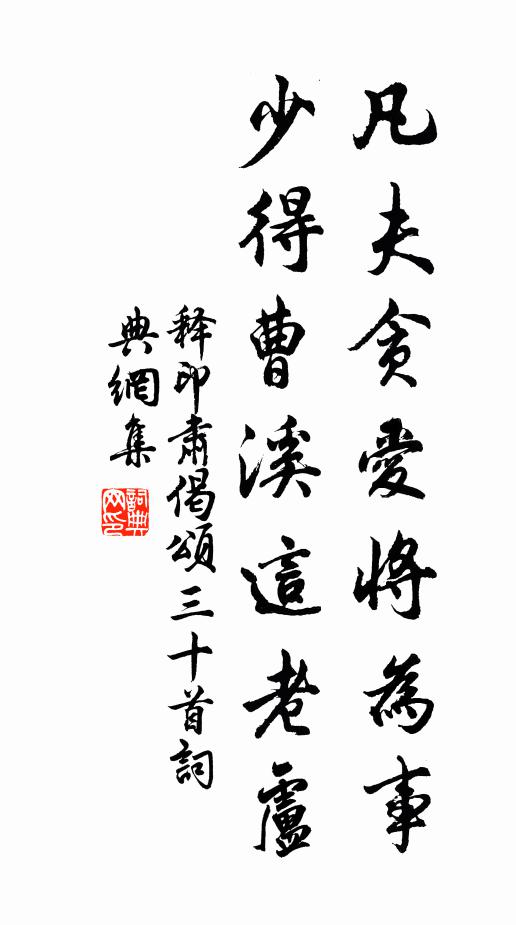 凡夫貪愛將為事
少得曹溪這老盧
释印肃偈頌三十首詞
典網集
詞典網印